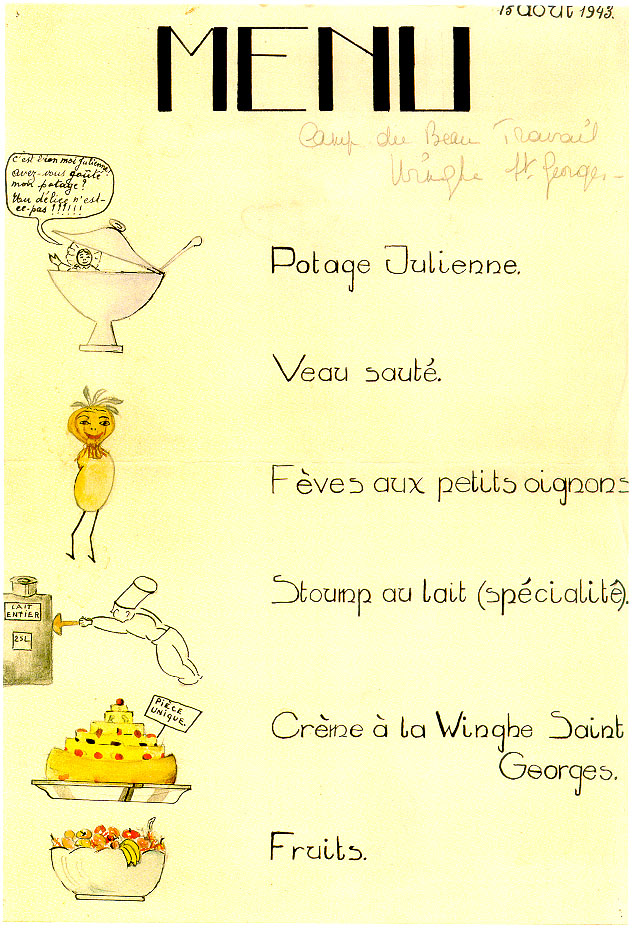 15 août 1943.
MENU
Camp du Beau Travail
Winghe St. Georges -
C'est bien moi Julienne,
avez-vous goûté
mon potage?
Un délice n'est-
ce-pas !!!!!!
Potage Julienne.
Veau sauté.
Fèves aux petits oignons
LAIT
ENTIER
25L
Stoump au lait (spécialité).
PIÈCE
UNIQUE.
Crème à la Winghe Saint
Georges.
Fruits.